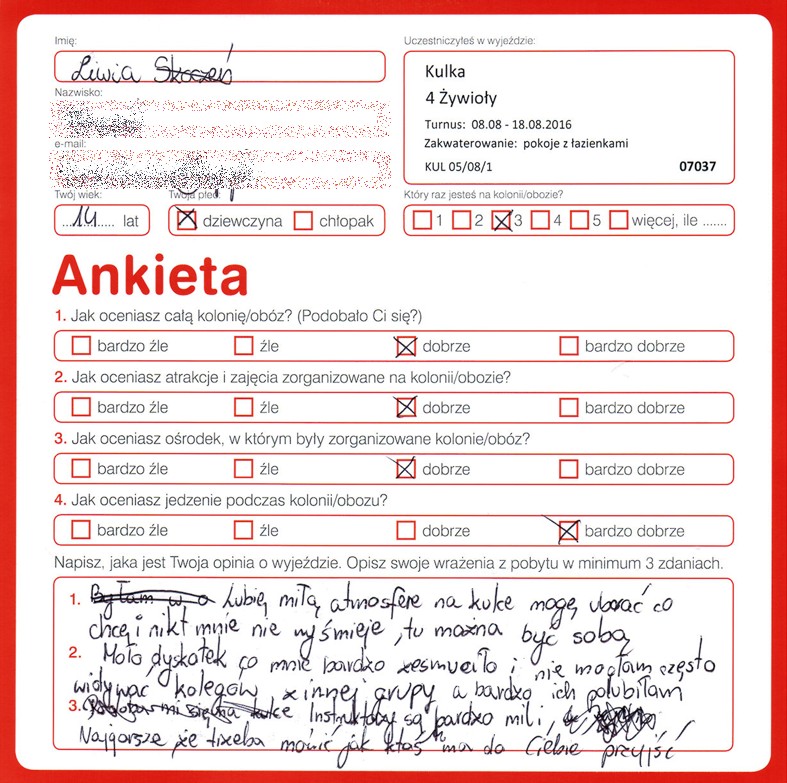 Imię:
Liwia
Uczestniczyłeś w wyjeździe:
Kulka
4 Żywioły
Turnus: 08.08 - 18.08.2016
Zakwaterowanie: pokoje z łazienkami
KUL 05/08/1 07037
Nazwisko:
e-mail:
Twój wiek:
14 lat
Twoja płeć:
dziewczyna chłopak
Który raz jesteś na kolonii/obozie?
1 2 3 4 5 więcej, ile .......
Ankieta
1. Jak oceniasz całą kolonię/obóz? (Podobało Ci się?)
bardzo źle źle dobrze bardzo dobrze
2. Jak oceniasz atrakcje i zajęcia zorganizowane na kolonii/obozie?
bardzo źle źle dobrze bardzo dobrze
3. Jak oceniasz ośrodek, w którym były zorganizowane kolonie/obóz?
bardzo źle źle dobrze bardzo dobrze
4. Jak oceniasz jedzenie podczas kolonii/obozu?
bardzo źle źle dobrze bardzo dobrze
Napisz, jaka jest Twoja opinia o wyjeździe. Opisz swoje wrażenia z pobytu w minimum 3 zdaniach.
1. Byłam w o Lubię miłą atmosfere na kulce mogę ubrać co
chcę i nikt mnie nie wyśmieje, tu można być sobą
2. Mało dyskotek co mnie bardzo zesmuciło i nie mogłam często
widywać kolegów z innej grupy a bardzo ich polubiłam
3. kulce Instruktorzy są bardzo mili,
Najgorsze że trzeba mówić jak ktoś ma do Ciebie przyjść